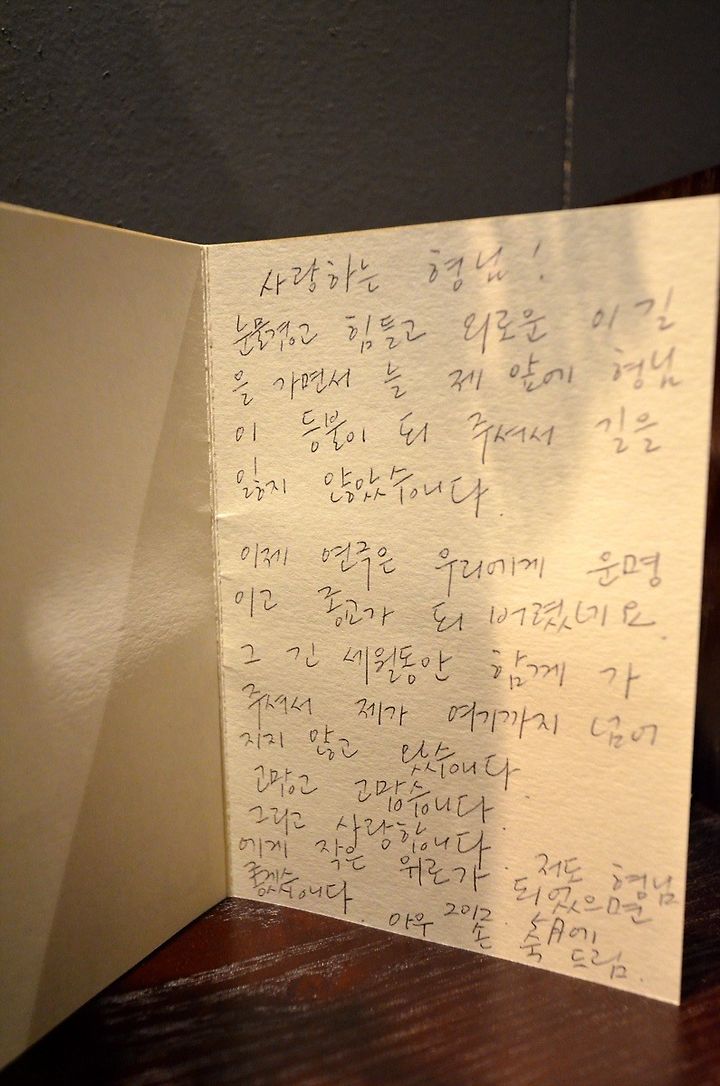 사랑하는 형님!
눈물겹고 힘들고 외로운 이 길
을 가면서 늘 제 앞에 형님
이 등불이 되 주셔서 길을
잃지 않았습니다.
이제 연극은 우리에게 운명
이고 종교가 되 버렸네요.
그 긴 세월동안 함께 가
주셔서 제가 여기까지 넘어
지지 않고 왔습니다
고맙고 고맙습니다.
그리고 사랑합니다. 저도 형님
에게 작은 위로가 되었으면
좋겠습니다. 2012.
아우 손 숙 드림.